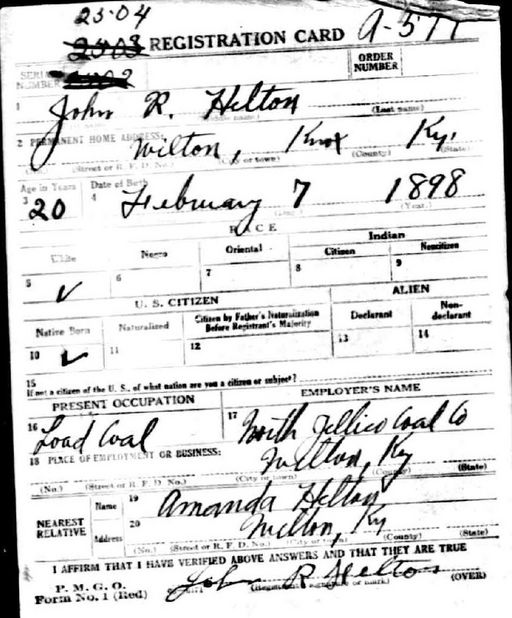 23-04
REGISTRATION CARD A-577
SERIAL NUMBER
ORDER NUMBER
1 John R. Helton
(Last name)
2 PERMANENT HOME ADDRESS:
Wilton, Knox Ky.
(Street or R. F. D. No.) (City or town) (County) (State)
Age in Years Date of Birth
3 20 4 February 7 1898
(Year.)
RACE
White Negro Oriental Indian
Citizen Noncitizen
5 ✓ 6 7 8 9
U. S. CITIZEN ALIEN
Native Born Naturalized Citizen by Father's Naturalization Before Registrant's Majority Declarant Non-declarant
10 ✓ 11 12 13 14
15 If not a citizen of the U. S., of what nation are you a citizen or subject?
PRESENT OCCUPATION EMPLOYER'S NAME
16 Load Coal 17 North Jellico Coal Co
18 PLACE OF EMPLOYMENT OR BUSINESS:
Wilton, Ky
(No.) (Street or R. F. D. No.) (City or town) (County) (State)
NEAREST RELATIVE
Name 19 Amanda Helton
Address 20 Wilton, Ky
(No.) (Street or R. F. D. No.) (City or town) (County) (State)
I AFFIRM THAT I HAVE VERIFIED ABOVE ANSWERS AND THAT THEY ARE TRUE
P. M. G. O.
Form No. 1 (Red) John R Helton
(Registrant's signature or mark) (OVER)